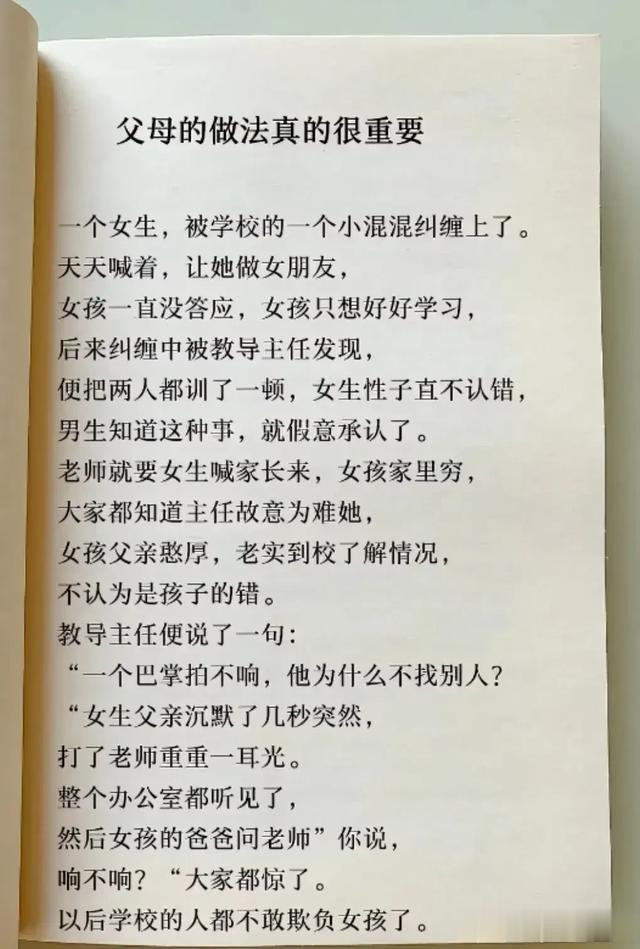 父母的做法真的很重要
一个女生，被学校的一个小混混纠缠上了。
天天喊着，让她做女朋友，
女孩一直没答应，女孩只想好好学习，
后来纠缠中被教导主任发现，
便把两人都训了一顿，女生性子直不认错，
男生知道这种事，就假意承认了。
老师就要女生喊家长来，女孩家里穷，
大家都知道主任故意为难她，
女孩父亲憨厚，老实到校了解情况，
不认为是孩子的错。
教导主任便说了一句：
“一个巴掌拍不响，他为什么不找别人？
“女生父亲沉默了几秒突然，
打了老师重重一耳光。
整个办公室都听见了，
然后女孩的爸爸问老师”你说，
响不响？“大家都惊了。
以后学校的人都不敢欺负女孩了。